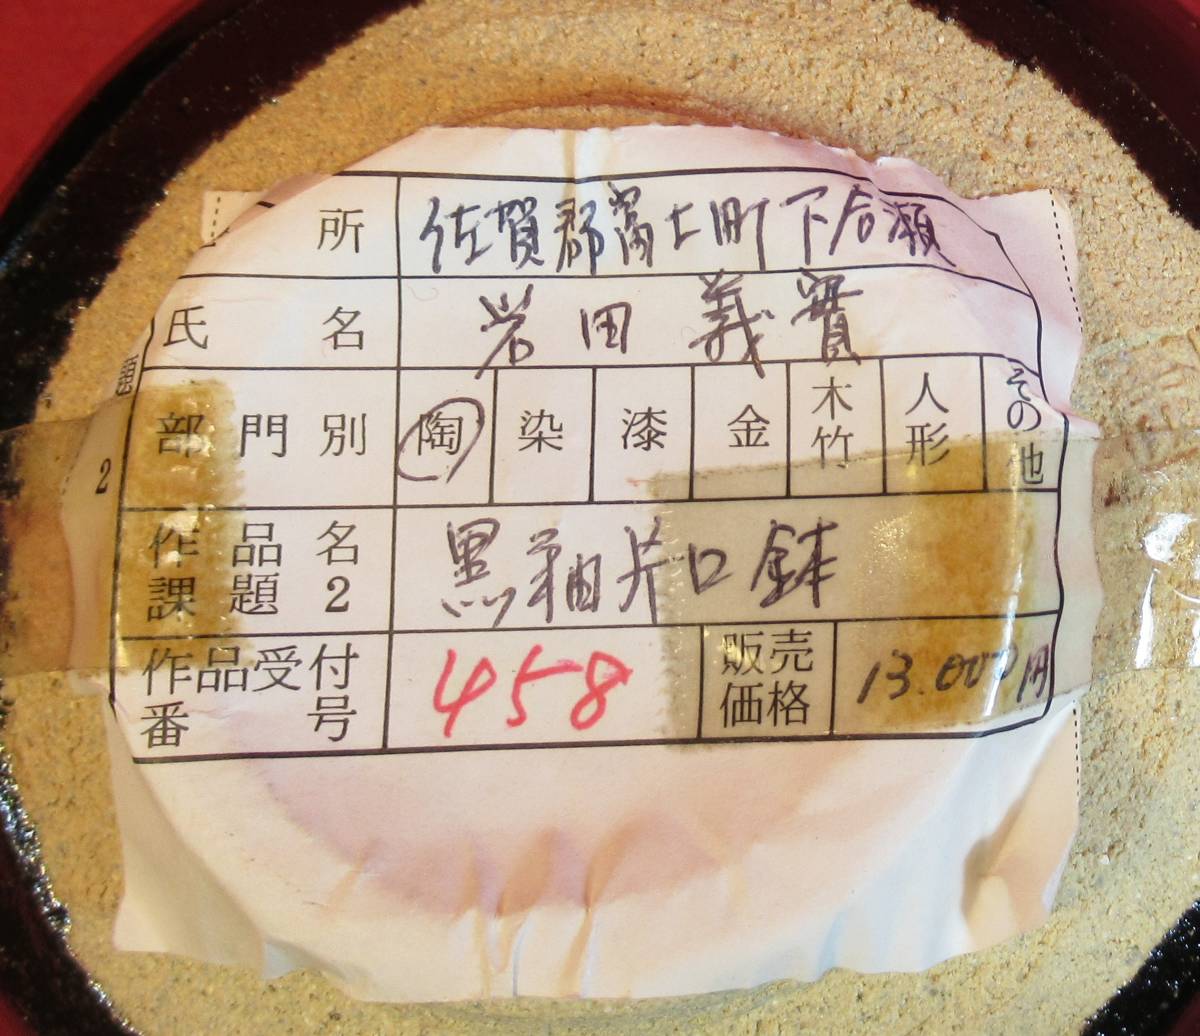 所 佐賀郡富士町下合瀬
氏名 岩田義實
題
部門別 陶 染 漆 金 木竹 人形 その他
2
作品名 黒釉片口鉢
課題2
作品受付 458 販売 13.000円
番号 価格